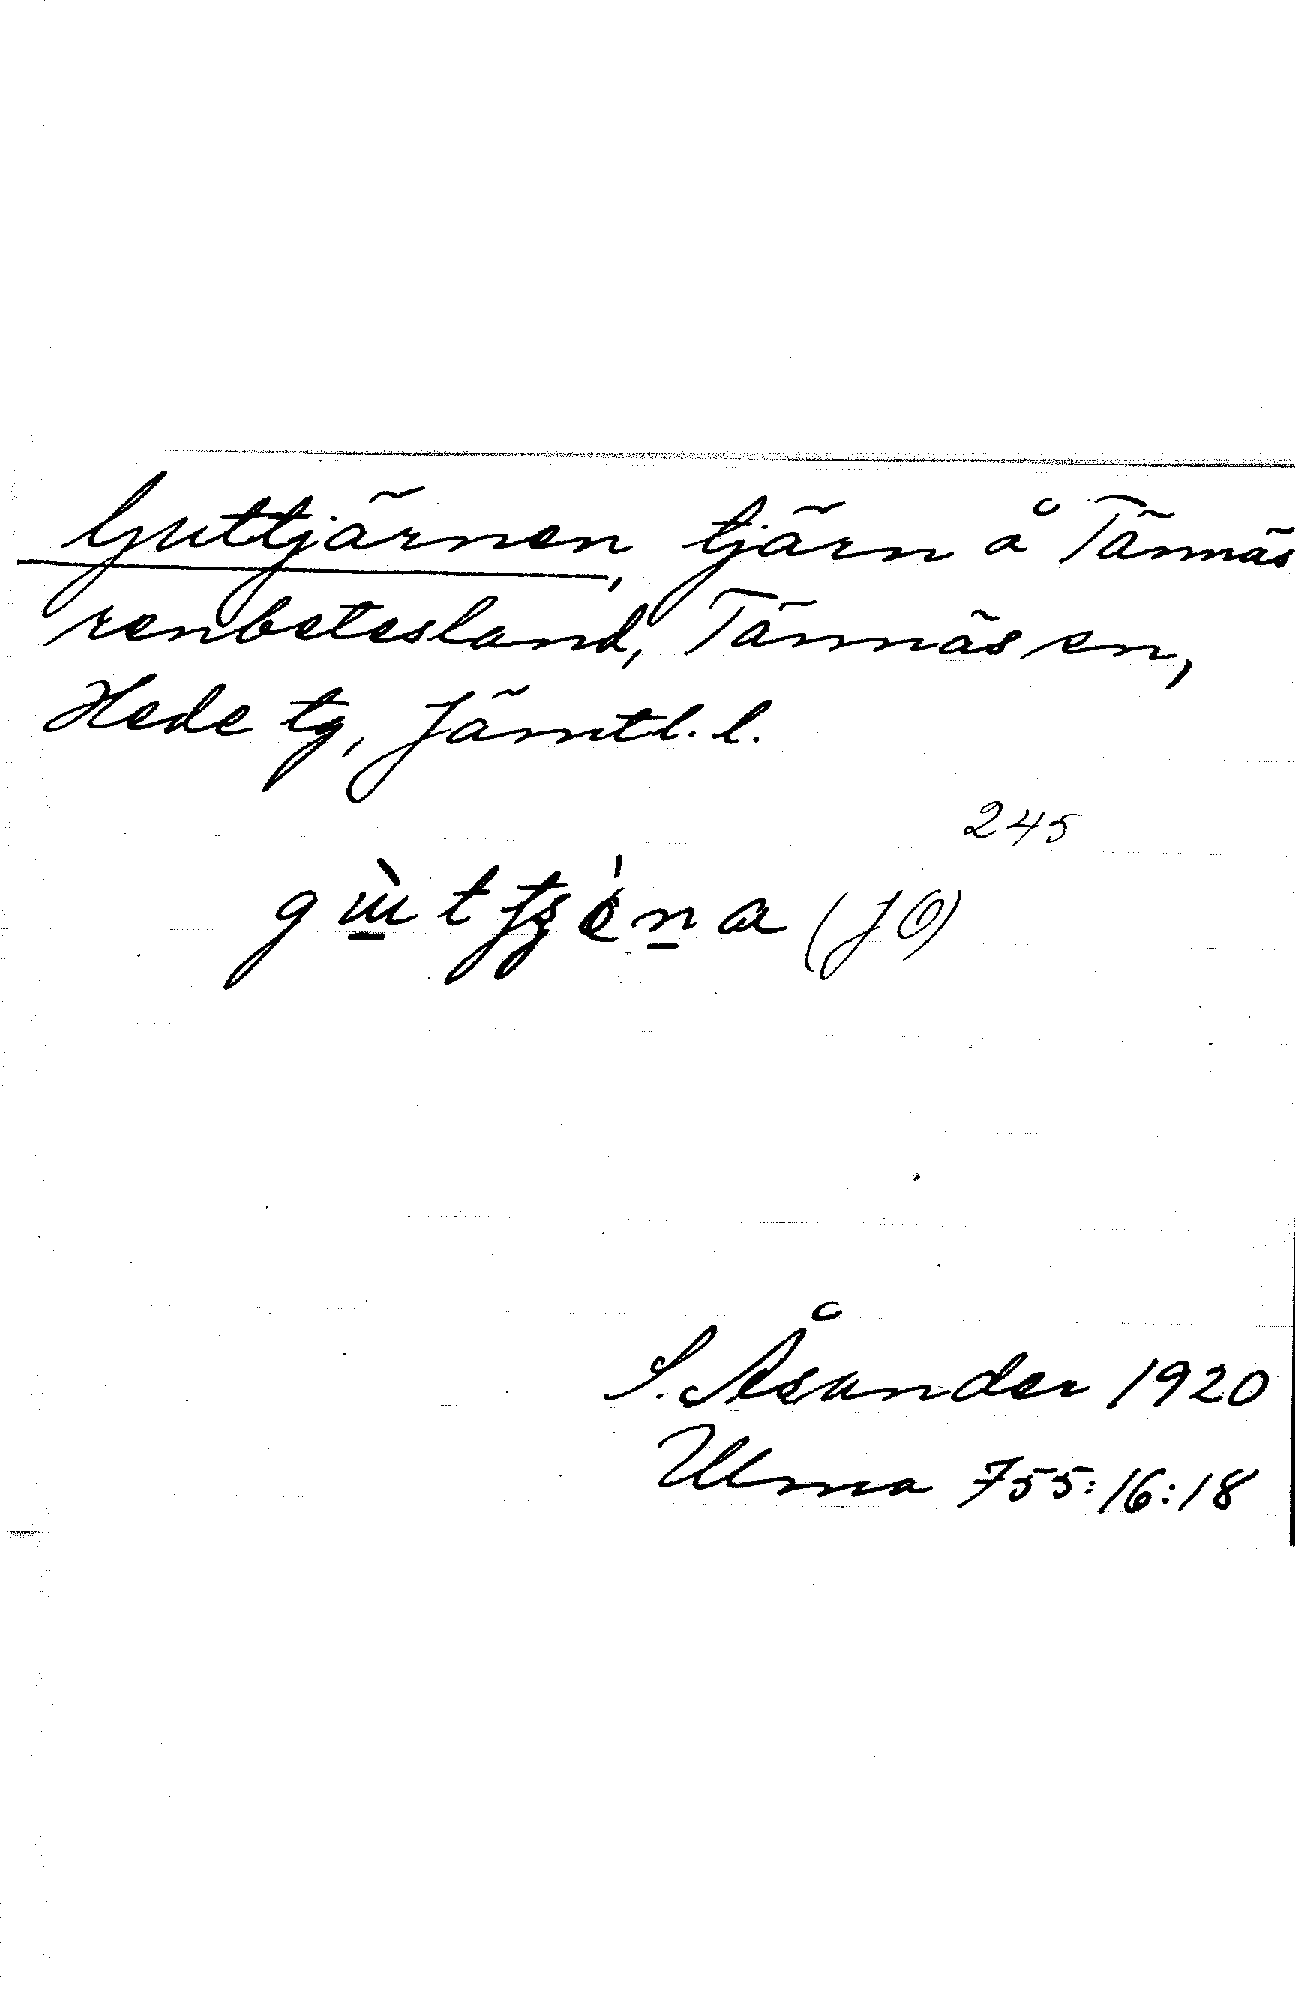 Guttjärnen, tjärn å Tännäs
renbetesland, Tännäs sn,
Hede tg, Jämtl. l.
245
(JO)
S. Åsander 1920
Ulma 755:16:18